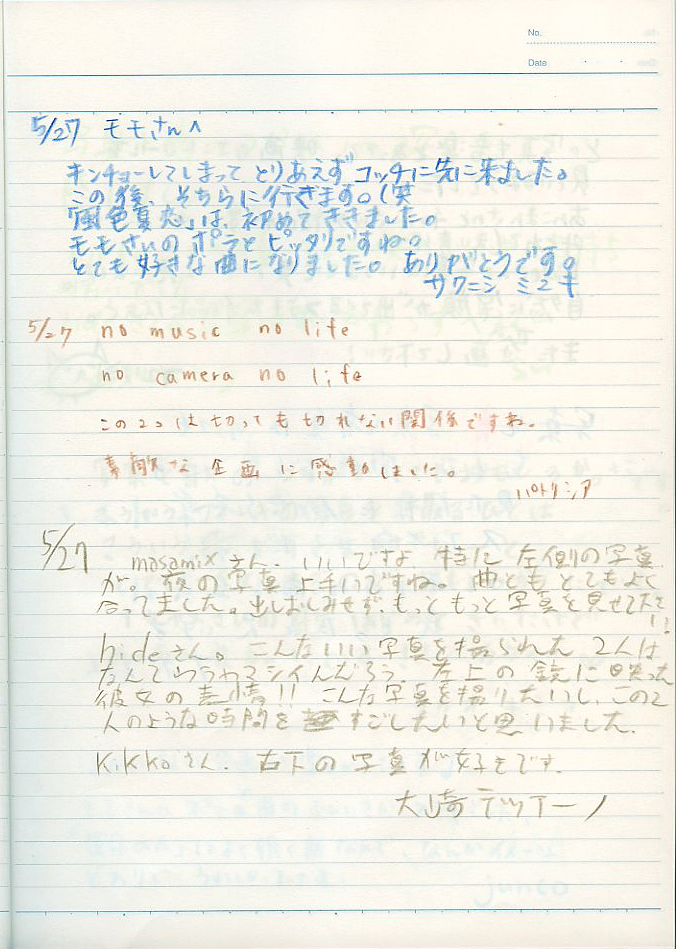 No.
Date
5/27 モモさんへ
キンチョーしてしまって とりあえず コッチに先に来ました。
この後、そちらに行きます。(笑
「風色夏恋」は、初めてききました。
モモさんのポラとピッタリですね。
とても好きな曲になりました。ありがとうです。
サワニシ ミユキ
5/27 no music no life
no camera no life
この2つは切っても切れない関係ですね。
素敵な企画に感動しました。
パトリシア
5/27 masamixさん、いいですよ 特に左側の写真
が。夜の写真上手いですね。曲ともとてもよく
合ってました。出しおしみせず、もっともっと写真を見せて下さい!!
hideさん。こんないい写真を撮られた2人は
なんてウラヤマシイんだろう。左上の鏡に映った
彼女の表情!! こんな写真を撮りたいし、この2
人のような時間をすごしたいと思いました。
Kikkoさん、右下の写真が好きです。
大崎テツヤーノ
junco